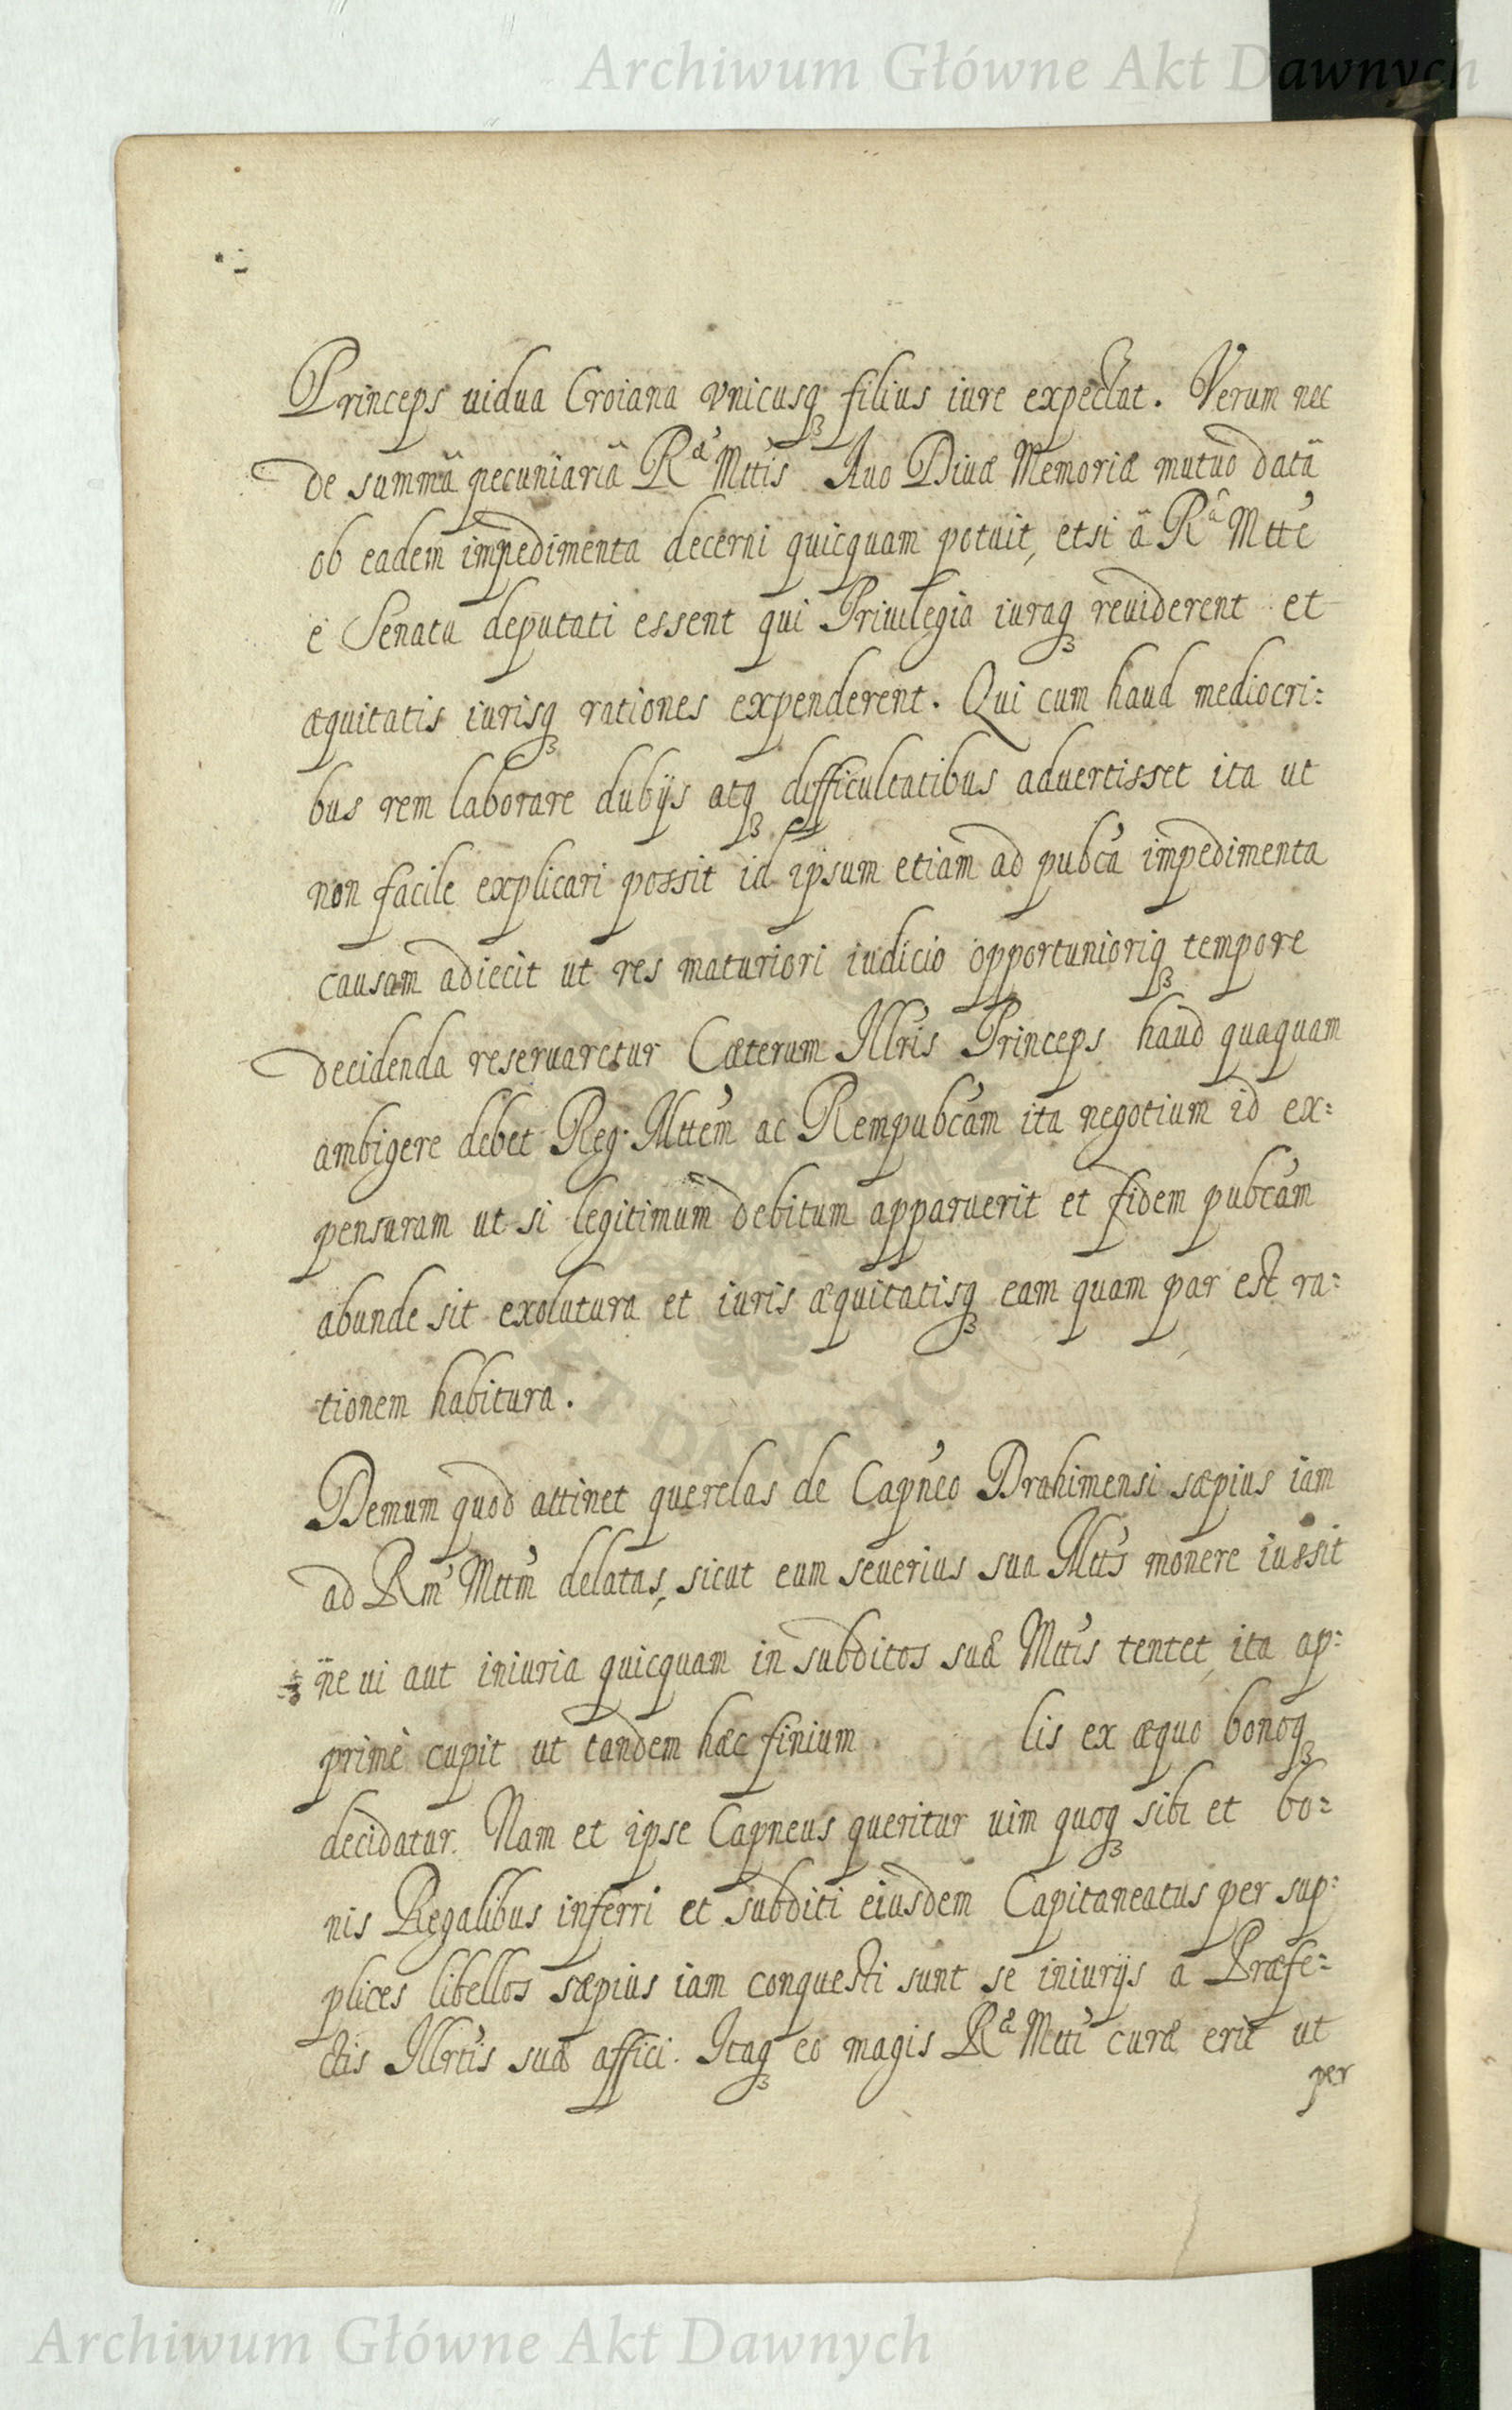 Archiwum Główne Akt Dawnych
Princeps uidua Croiana vnicusqȝ filius iure expectat. Verum nec
de summâ pecuniariâ Rᵃ Mttis Auo Diuæ Memoriæ mutuo datâ
ob eadem impedimenta decerni quicquam potuit, etsi â Rᵃ Mtte
è Senatu deputati essent qui Priuilegia iuraqȝ reuiderent et
æquitatis iurisqȝ rationes expenderent. Qui cum haud mediocri:
bus rem laborare dubijs atqȝ difficultatibus aduertisset ita ut
non facile explicari possit id ipsum etiam ad pubca impedimenta
causam adiecit ut res maturiori iudicio opportunioriqȝ tempore
decidenda reseruaretur Cæterum Illris Princeps haud quaquam
ambigere debet Reg. Mttem ac Rempubcam ita negotium id ex:
pensuram ut si legitimum debitum apparuerit et fidem pubcam
abunde sit exolutura et iuris æquitatisqȝ eam quam par est ra:
tionem habitura.
Demum quod attinet querelas de Capneo Drahimensi sæpius iam
ad Rm Mttm delatas, sicut eum seuerius sua Mtts monere iussit
ne ui aut iniuria quicquam in subditos suæ Mttis tentet, ita ap:
primè cupit ut tandem hæc finium lis ex æquo bonoqȝ
decidatur. Nam et ipse Capneus queritur uim quoqȝ sibi et bo:
nis Regalibus inferri et subditi eiusdem Capitaneatus per sup:
plices libellos sæpius iam conquesti sunt se iniurijs a Præfe:
ctis Illrtis suæ affici. Itaqȝ eo magis Rᵃ Mtti curæ erit ut
per
Archiwum Główne Akt Dawnych